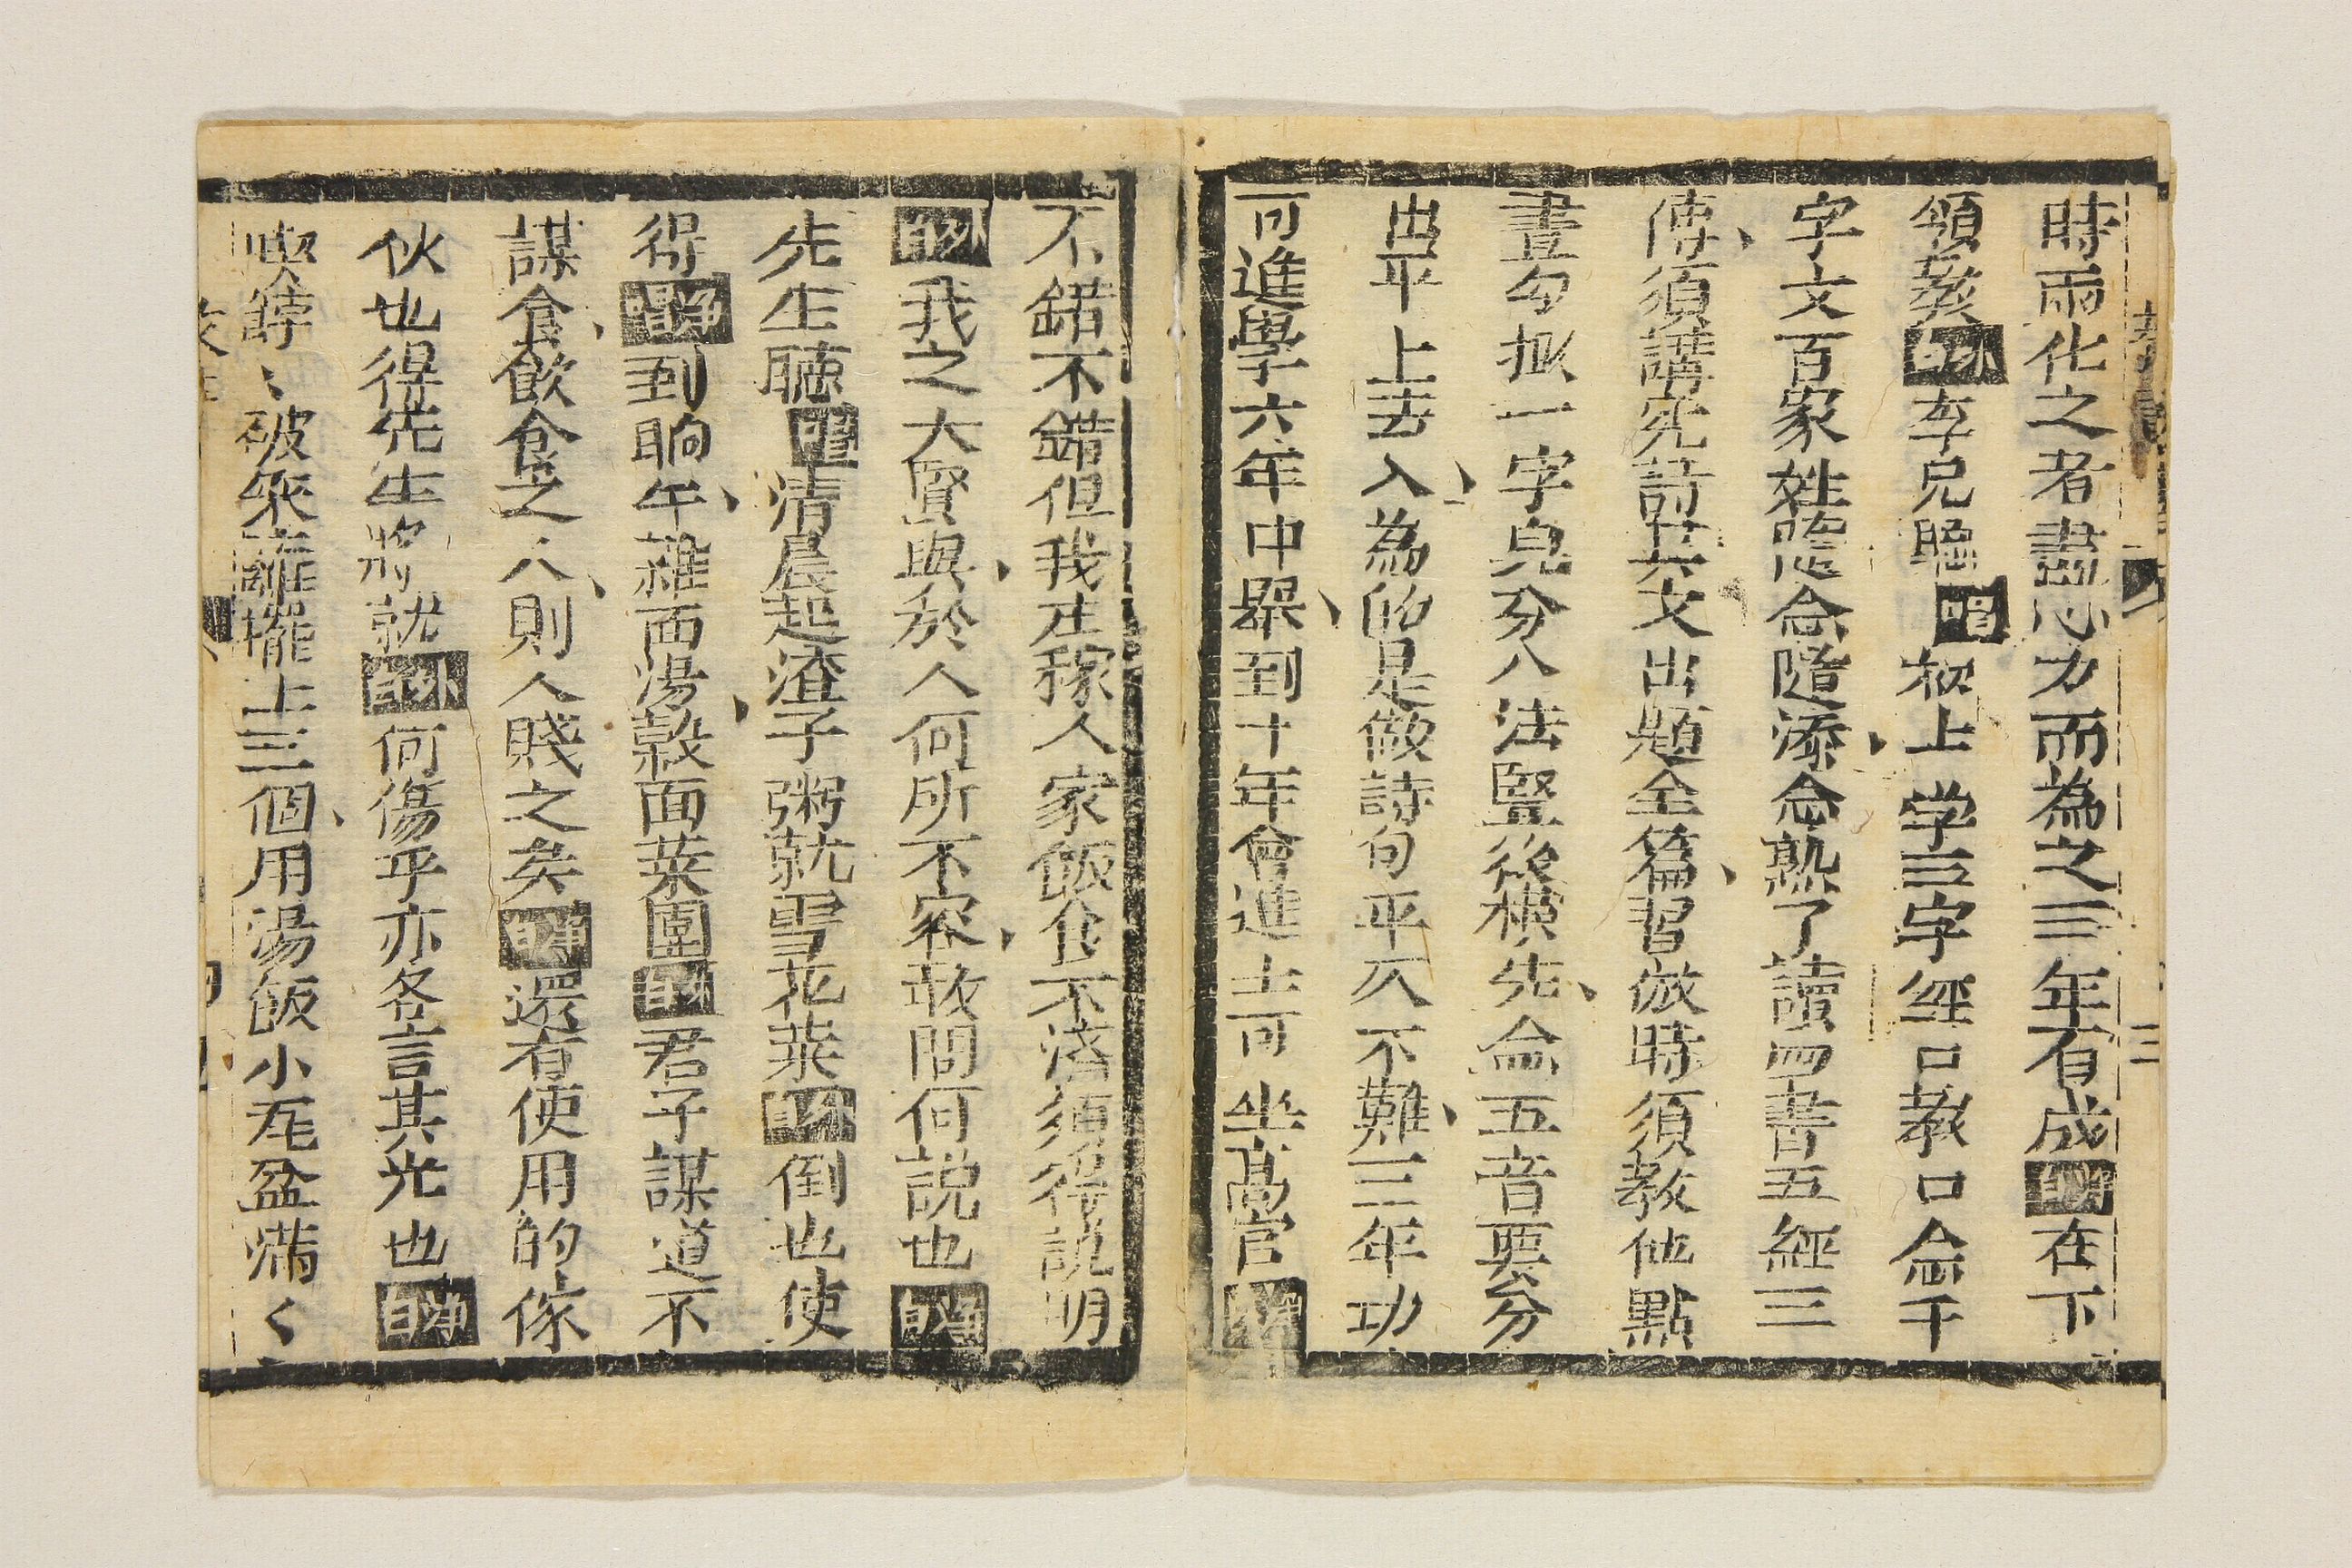 時雨化之者盡心力而為之三年有成外白在下
領教外白李兄聽净唱初上学三字經口教口念千
字文百家姓隨念隨添念熟了讀四書五經三
傳須講究詩古文出題全篇習倣時須教他點
畫勾抓一字兒分八法竪後橫先念五音要分
出平上去入為的是做詩句平仄不難三年功
可進學六年中舉到十年會進士可坐高官净
不錯不錯但我庄稼人家飯食不濟須得說明
外白我之大賢與於人何所不容敢問何説也净白
先生聽唱清晨起渣子粥就雪花菜外白倒也使
得净唱到晌午雜面湯榖面菜團外白君子謀道不
謀食飲食之人則人賤之矣净白還有使用的傢
伙也得先生將就外白何傷乎亦各言其光也净白
喫餑〻破柴籬擺上三個用湯飯小瓦盆滿〻